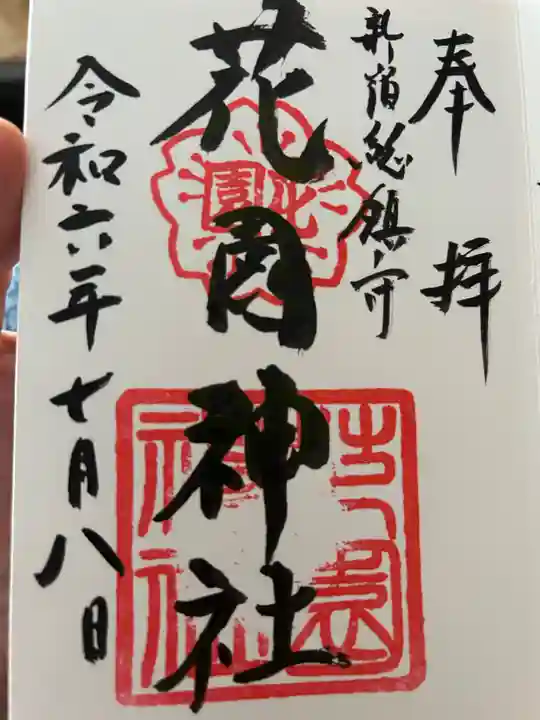 奉拝
新宿総鎮守
花園神社
令和六年七月八日
花園
花園神社